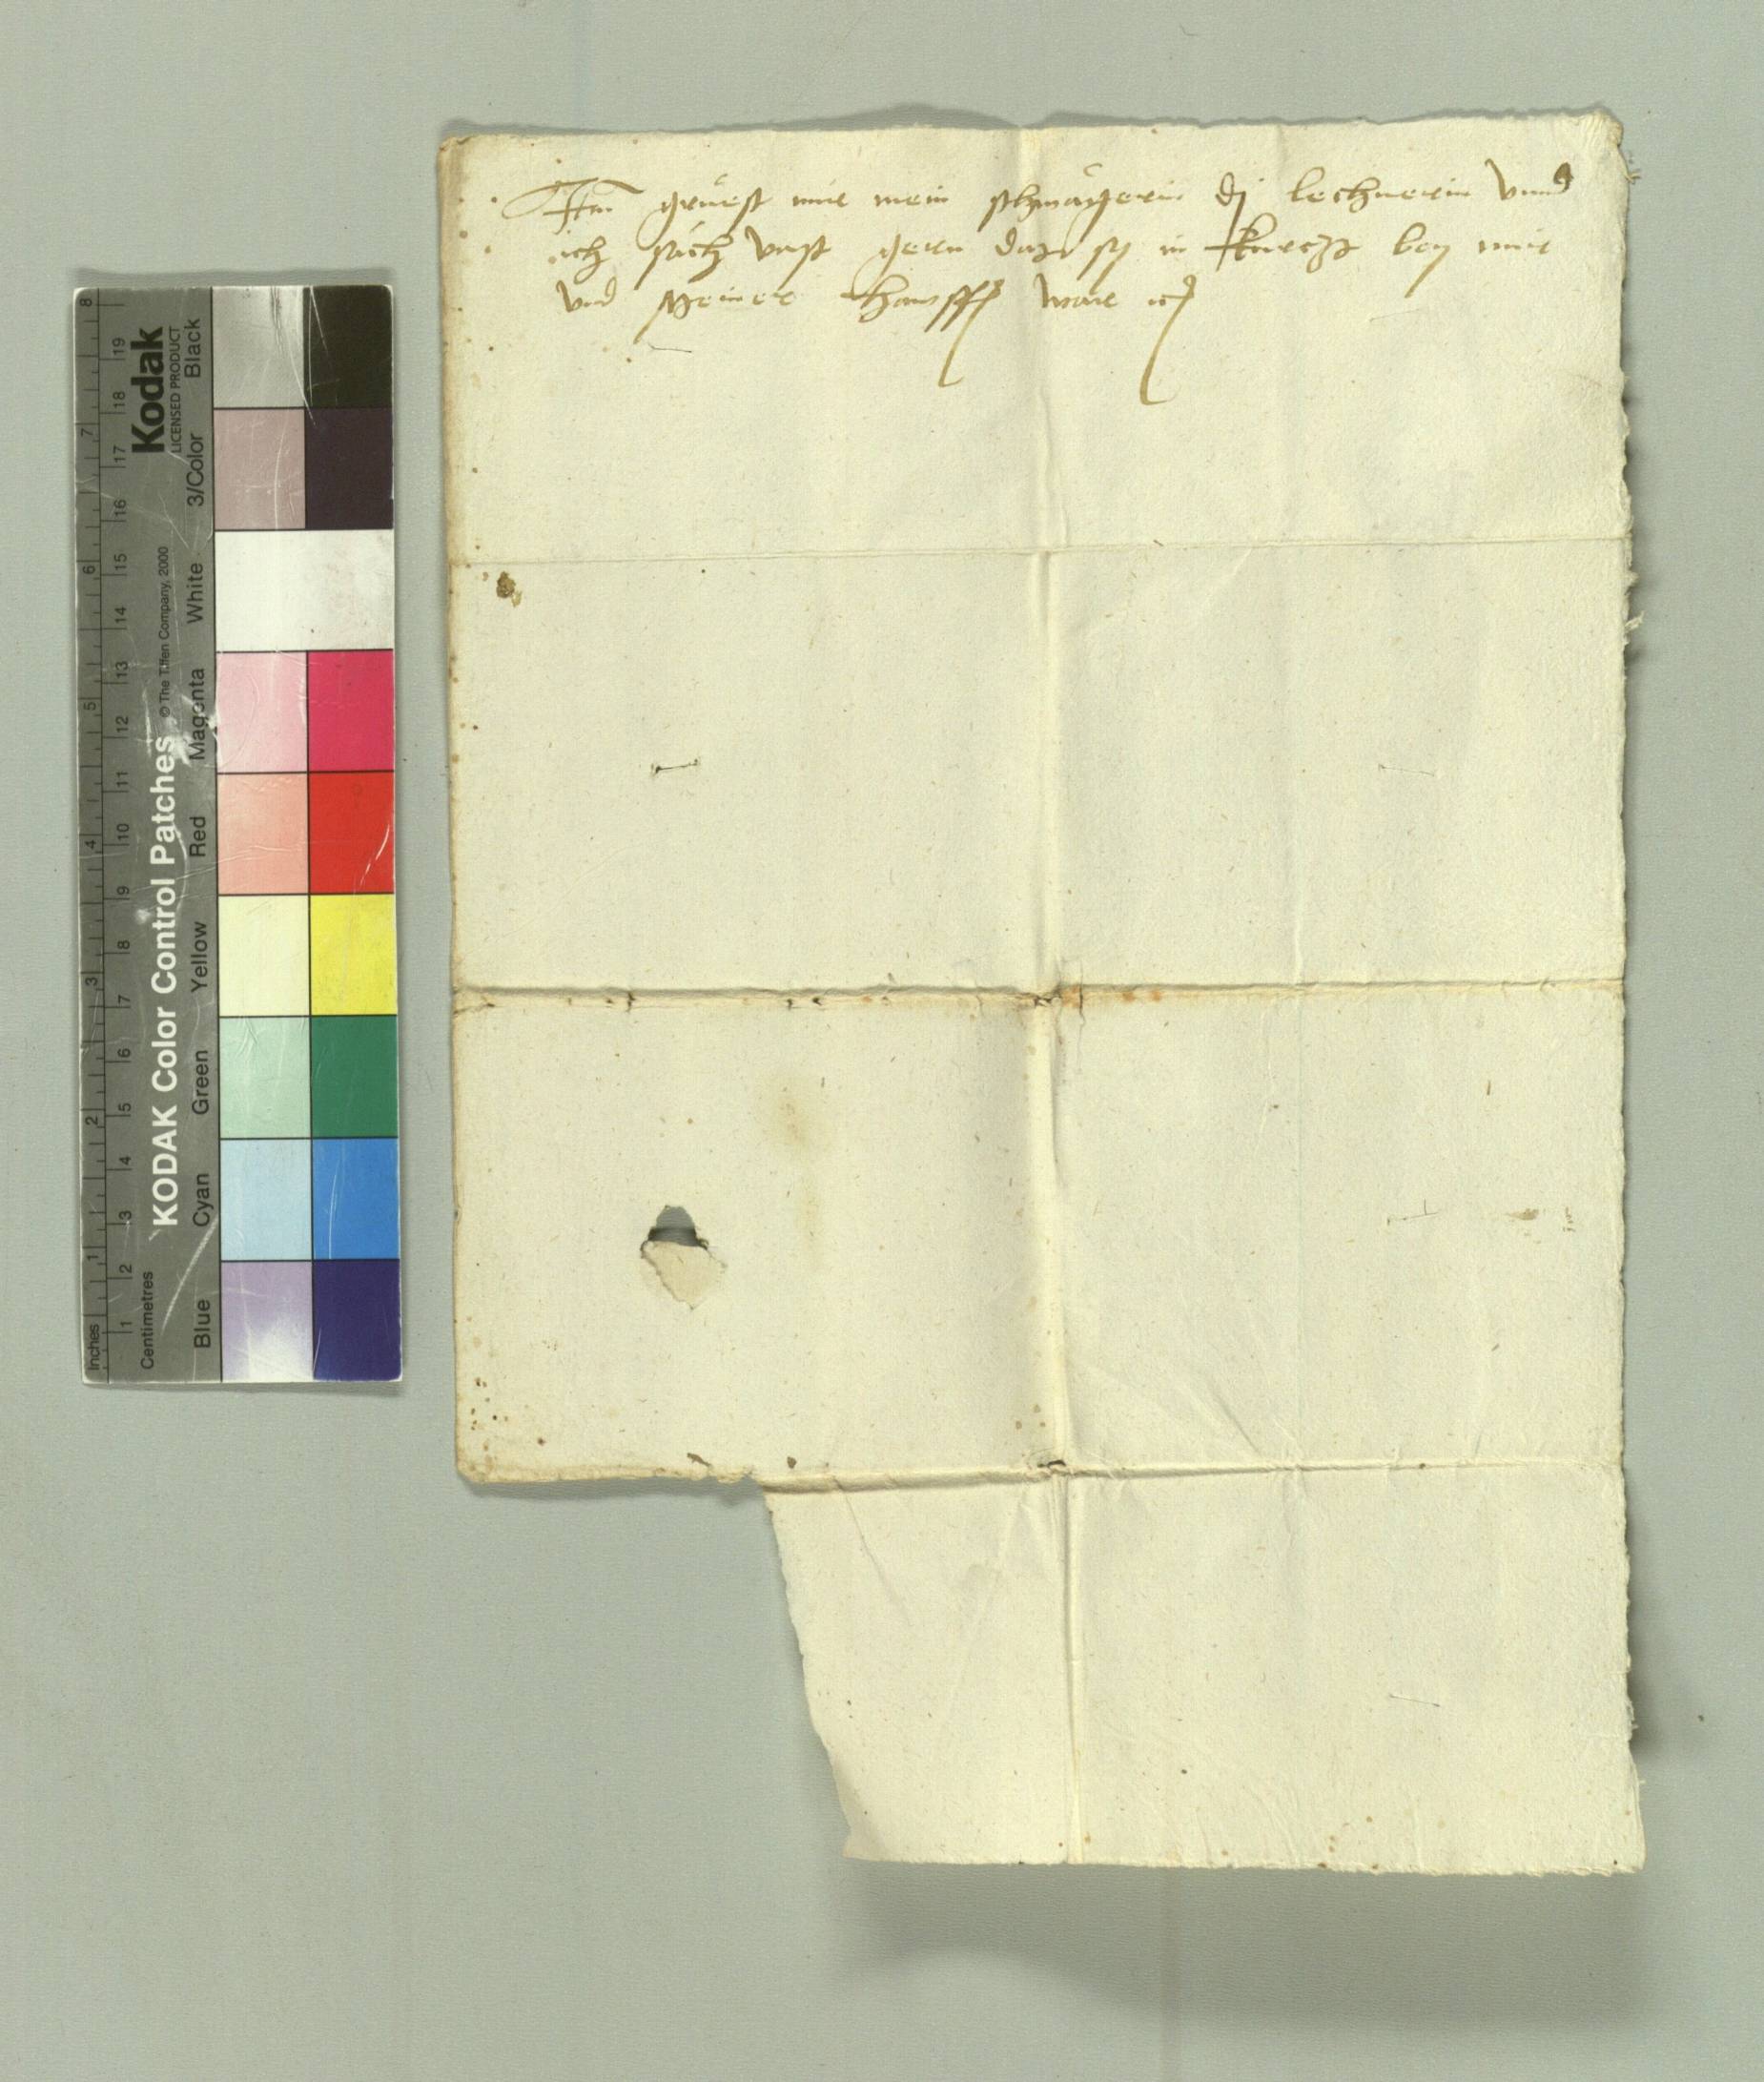 Item grüest mir mein schwägerin dj lechnerin vnnd
ich säch vast gern daz sy in kurcz bey mir
vnd meiner hawsf wär
Kodak
LICENSED PRODUCT
KODAK Color Control Patches
© The Tiffen Company, 2000
Blue Cyan Green Yellow Red Magenta White 3/Color Black
Inches 1 2 3 4 5 6 7 8
Centimetres 1 2 3 4 5 6 7 8 9 10 11 12 13 14 15 16 17 18 19